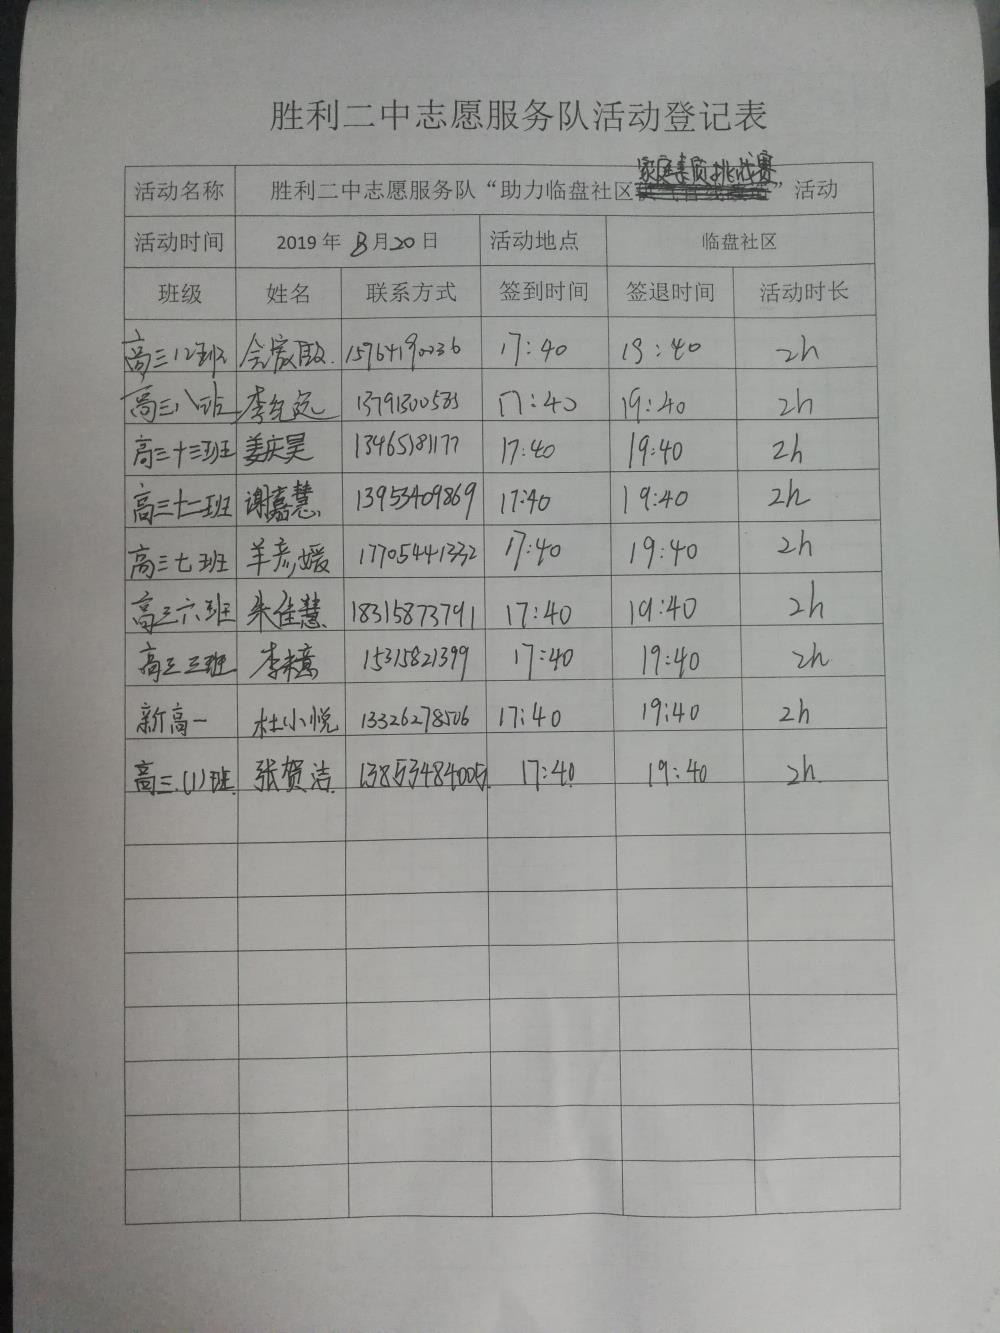 胜利二中志愿服务队活动登记表
家庭素质挑战赛
活动名称 胜利二中志愿服务队“助力临盘社区”活动
活动时间 2019年8月20日 活动地点 临盘社区
班级 姓名 联系方式 签到时间 签退时间 活动时长
高三12班 15764190036 17:40 19:40 2h
高三八班 李纪远 13791300585 17:40 19:40 2h
高三十三班 姜庆昊 13465181177 17:40 19:40 2h
高三十二班 谢嘉慧 13953409869 17:40 19:40 2h
高三七班 羊彦媛 17705441332 17:40 19:40 2h
高三六班 朱佳慧 18315873791 17:40 19:40 2h
高三三班 15315821399 17:40 19:40 2h
新高一 杜小悦 13326278506 17:40 19:40 2h
高三.(1)班. 张贺洁. 13853484005. 17:40. 19:40 2h.